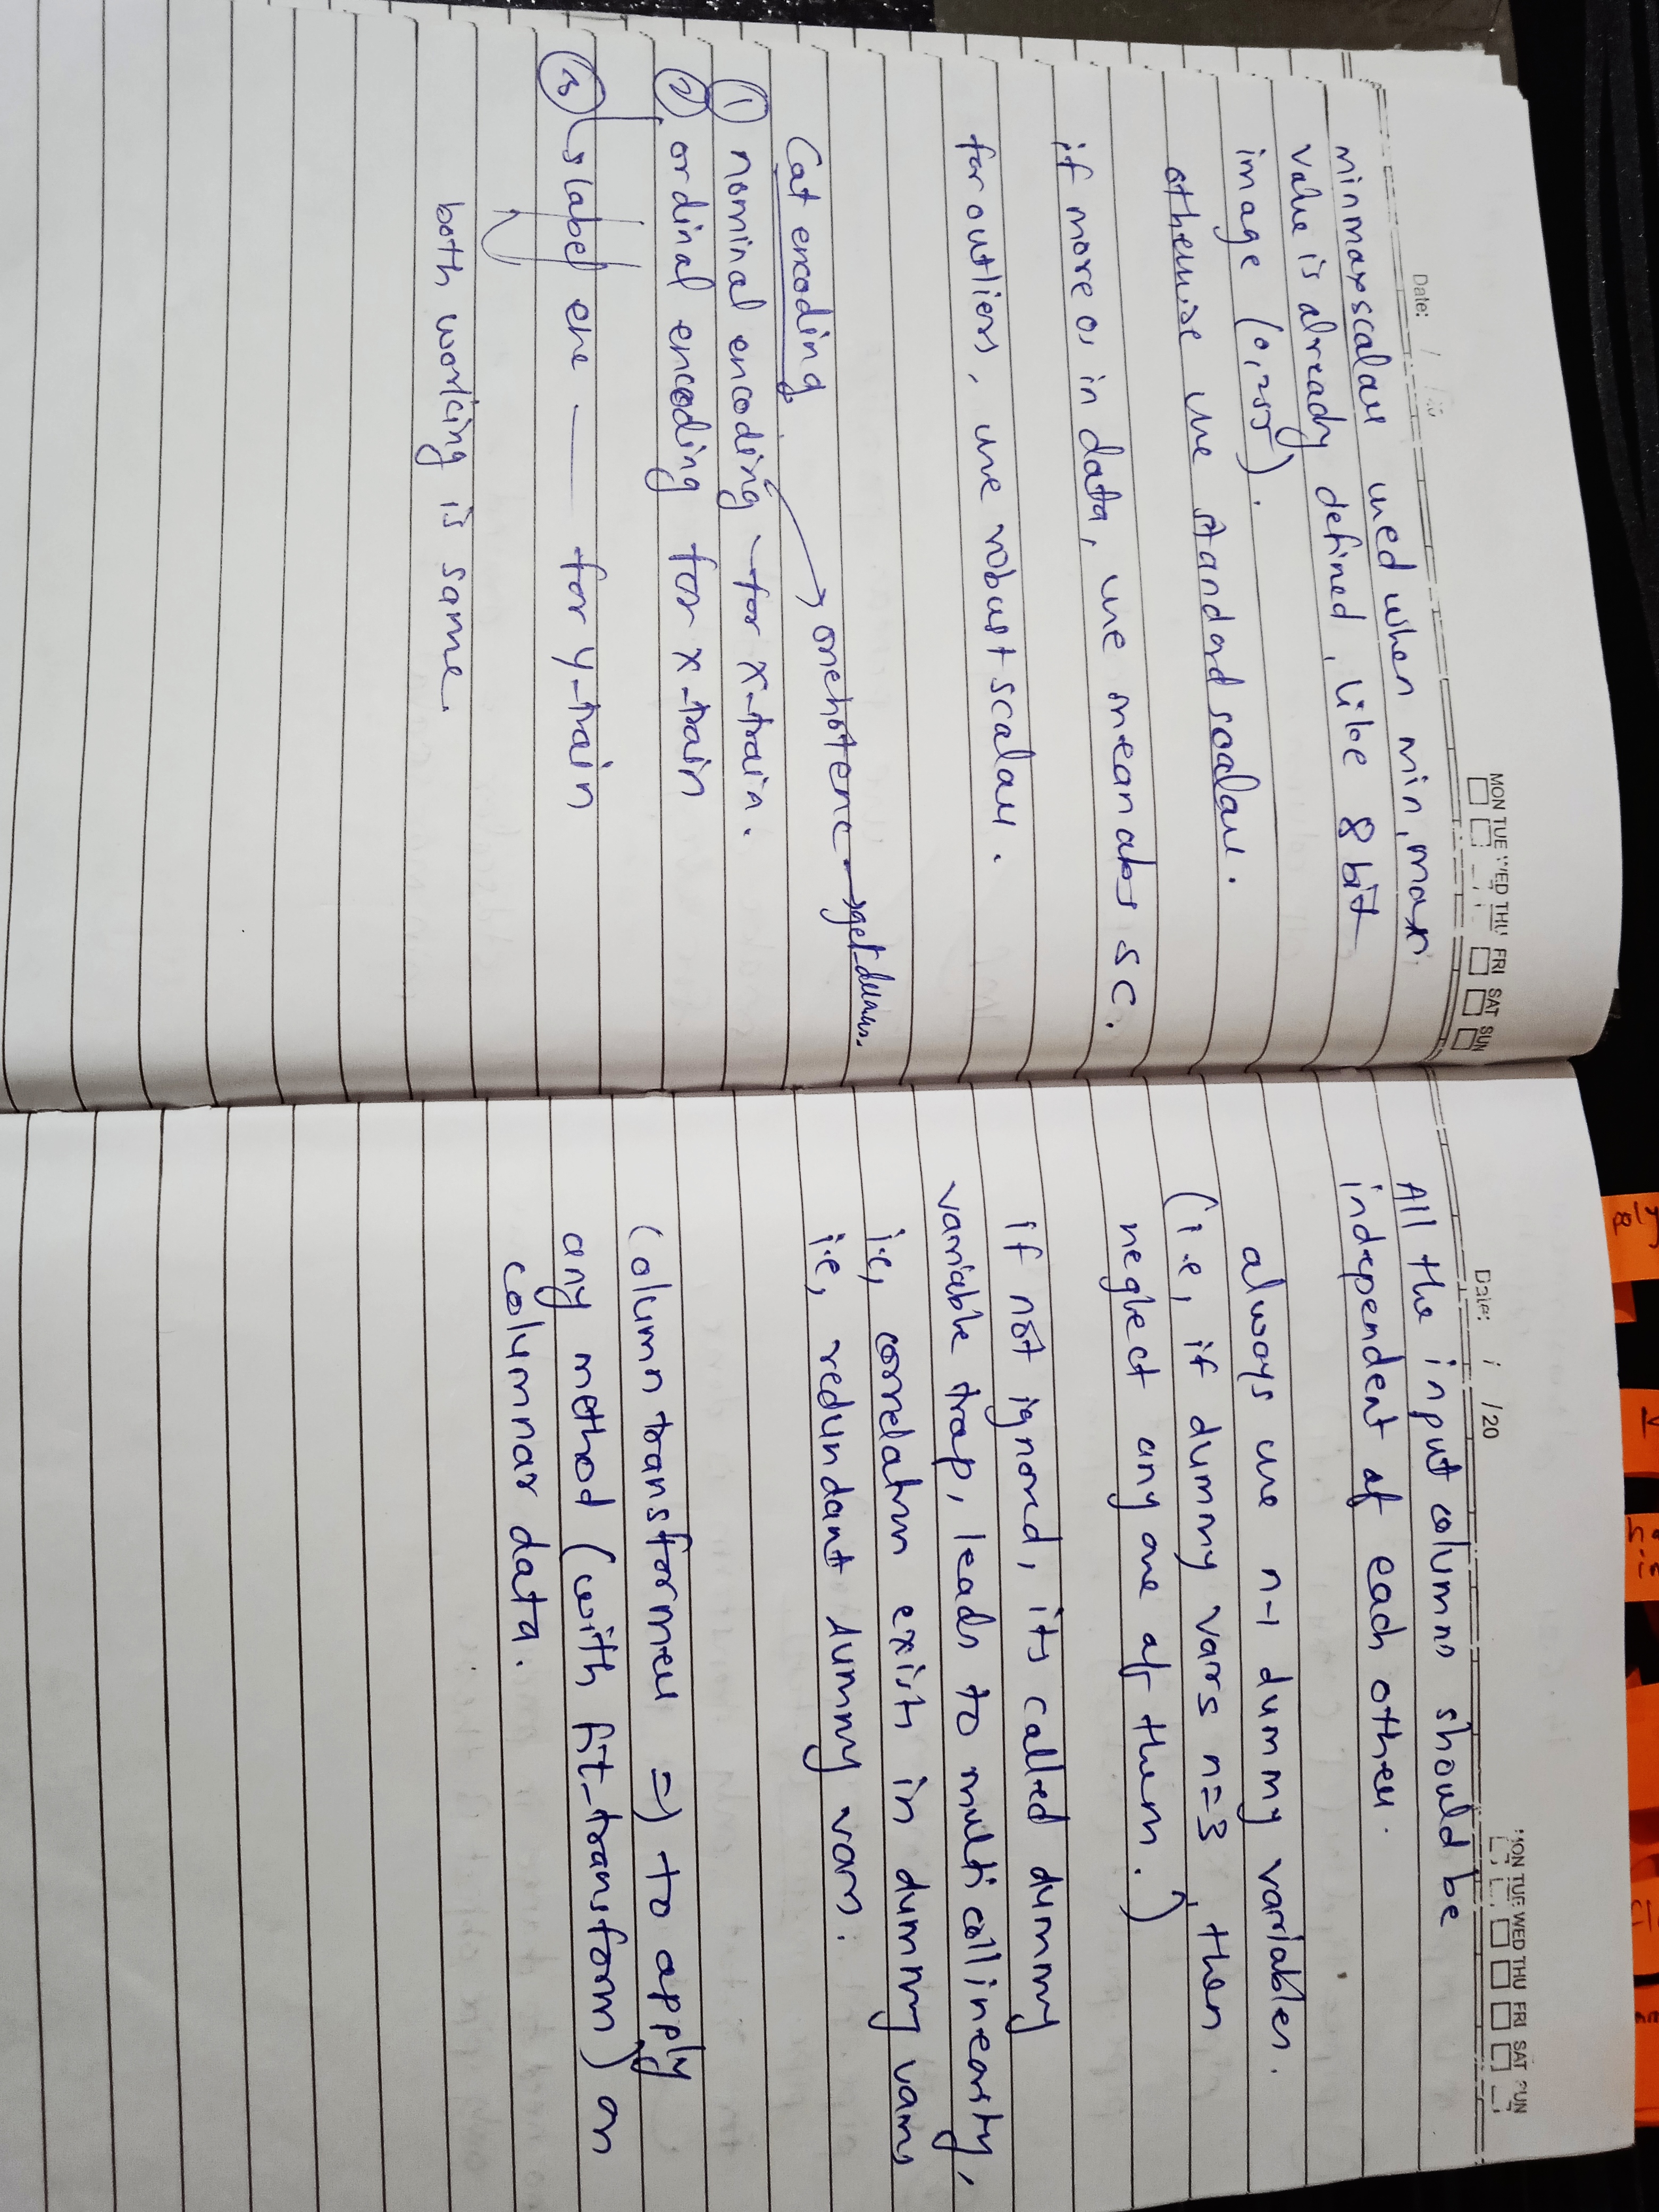 Date: /
MON TUE WED THU FRI SAT SUN
minmaxscalar used when min, max
value is already defined, like 8 bit
image (0,255).
otherwise use standard scalar.
if more 0s in data, use meanabs sc.
for outliers, use robust scalar.
Cat encoding
onehotenc → get_dum.
① nominal encoding - for x-train.
② ordinal encoding for x-train
③ label enc — for y-train
both working is same.
Date: / /20
MON TUE WED THU FRI SAT SUN
All the input columns should be
independent of each other.
always use n-1 dummy variables.
(i.e, if dummy vars n=3, then
neglect any one of them.)
if not ignored, its called dummy
variable trap, leads to multicollinearity,
i.e, correlatn exists in dummy vars
i.e, redundant dummy vars.
Column transformer => to apply
any method (with fit_transform) on
columnar data.
poly